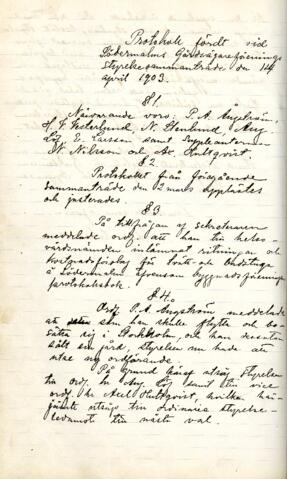 Protokoll fördt vid
Södermalms Gårdsägareförenings
styrelsesammanträde den 14
april 1903.
§ 1.
Närvarande voro: P. A. Ångström,
K. F. Vesterlund, N. Stenlund, Aug.
Löf, P. Larsson samt suppleanterna
N. Nilson och Ax. Hultqvist.
§ 2.
Protokollet från föregående
sammanträde den 2 mars upplästes
och justerades.
§ 3.
På tillfrågan af sekreteraren
meddelade ordf. att han till helso-
vårdsnämnden inlämnat ritningar och
kostnadsförslag för
å Södermalm
protokollsbok.
§ 4.
Ordf. P. A. Ångström meddelade
att som han skulle flytta och bo-
sätta sig i Stockholm, och han dessutom
sålt sin gård, styrelsen nu hade att
utse ny ordförande.
På grund häraf utsåg styrelsen
till ordf. hr Aug. Löf samt till vice
ordf. hr Axel Hultqvist, hvilken här-
jämte utsågs till ordinarie styrelse-
ledamot till nästa val.